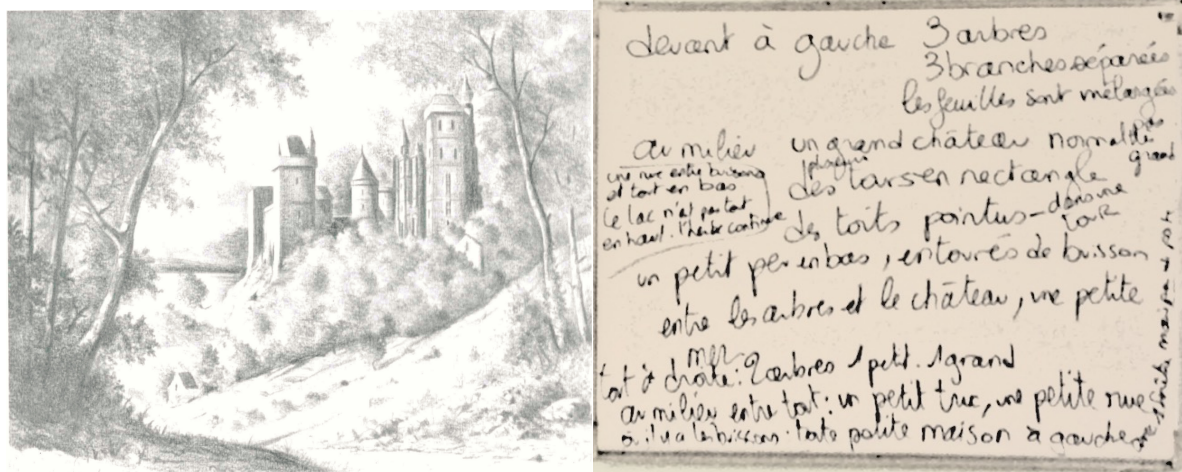 devant à gauche 3 arbres
3 branches séparées
les feuilles sont mélangées
au milieu un grand château normal très pas grand
une rue entre buissons
et tout en bas
le lac n'est partout
en haut. l'herbe continue
plusieurs
des tours en rectangle
des toits pointus - dans une tour
un petit peu en bas, entourés de buisson
entre les arbres et le château, une petite
mer
tout à droite : 2 arbres 1 petit. 1 grand
au milieu entre tout : un petit truc, une petite rue
où il y a les buissons. toute petite maison à gauche
petite maison